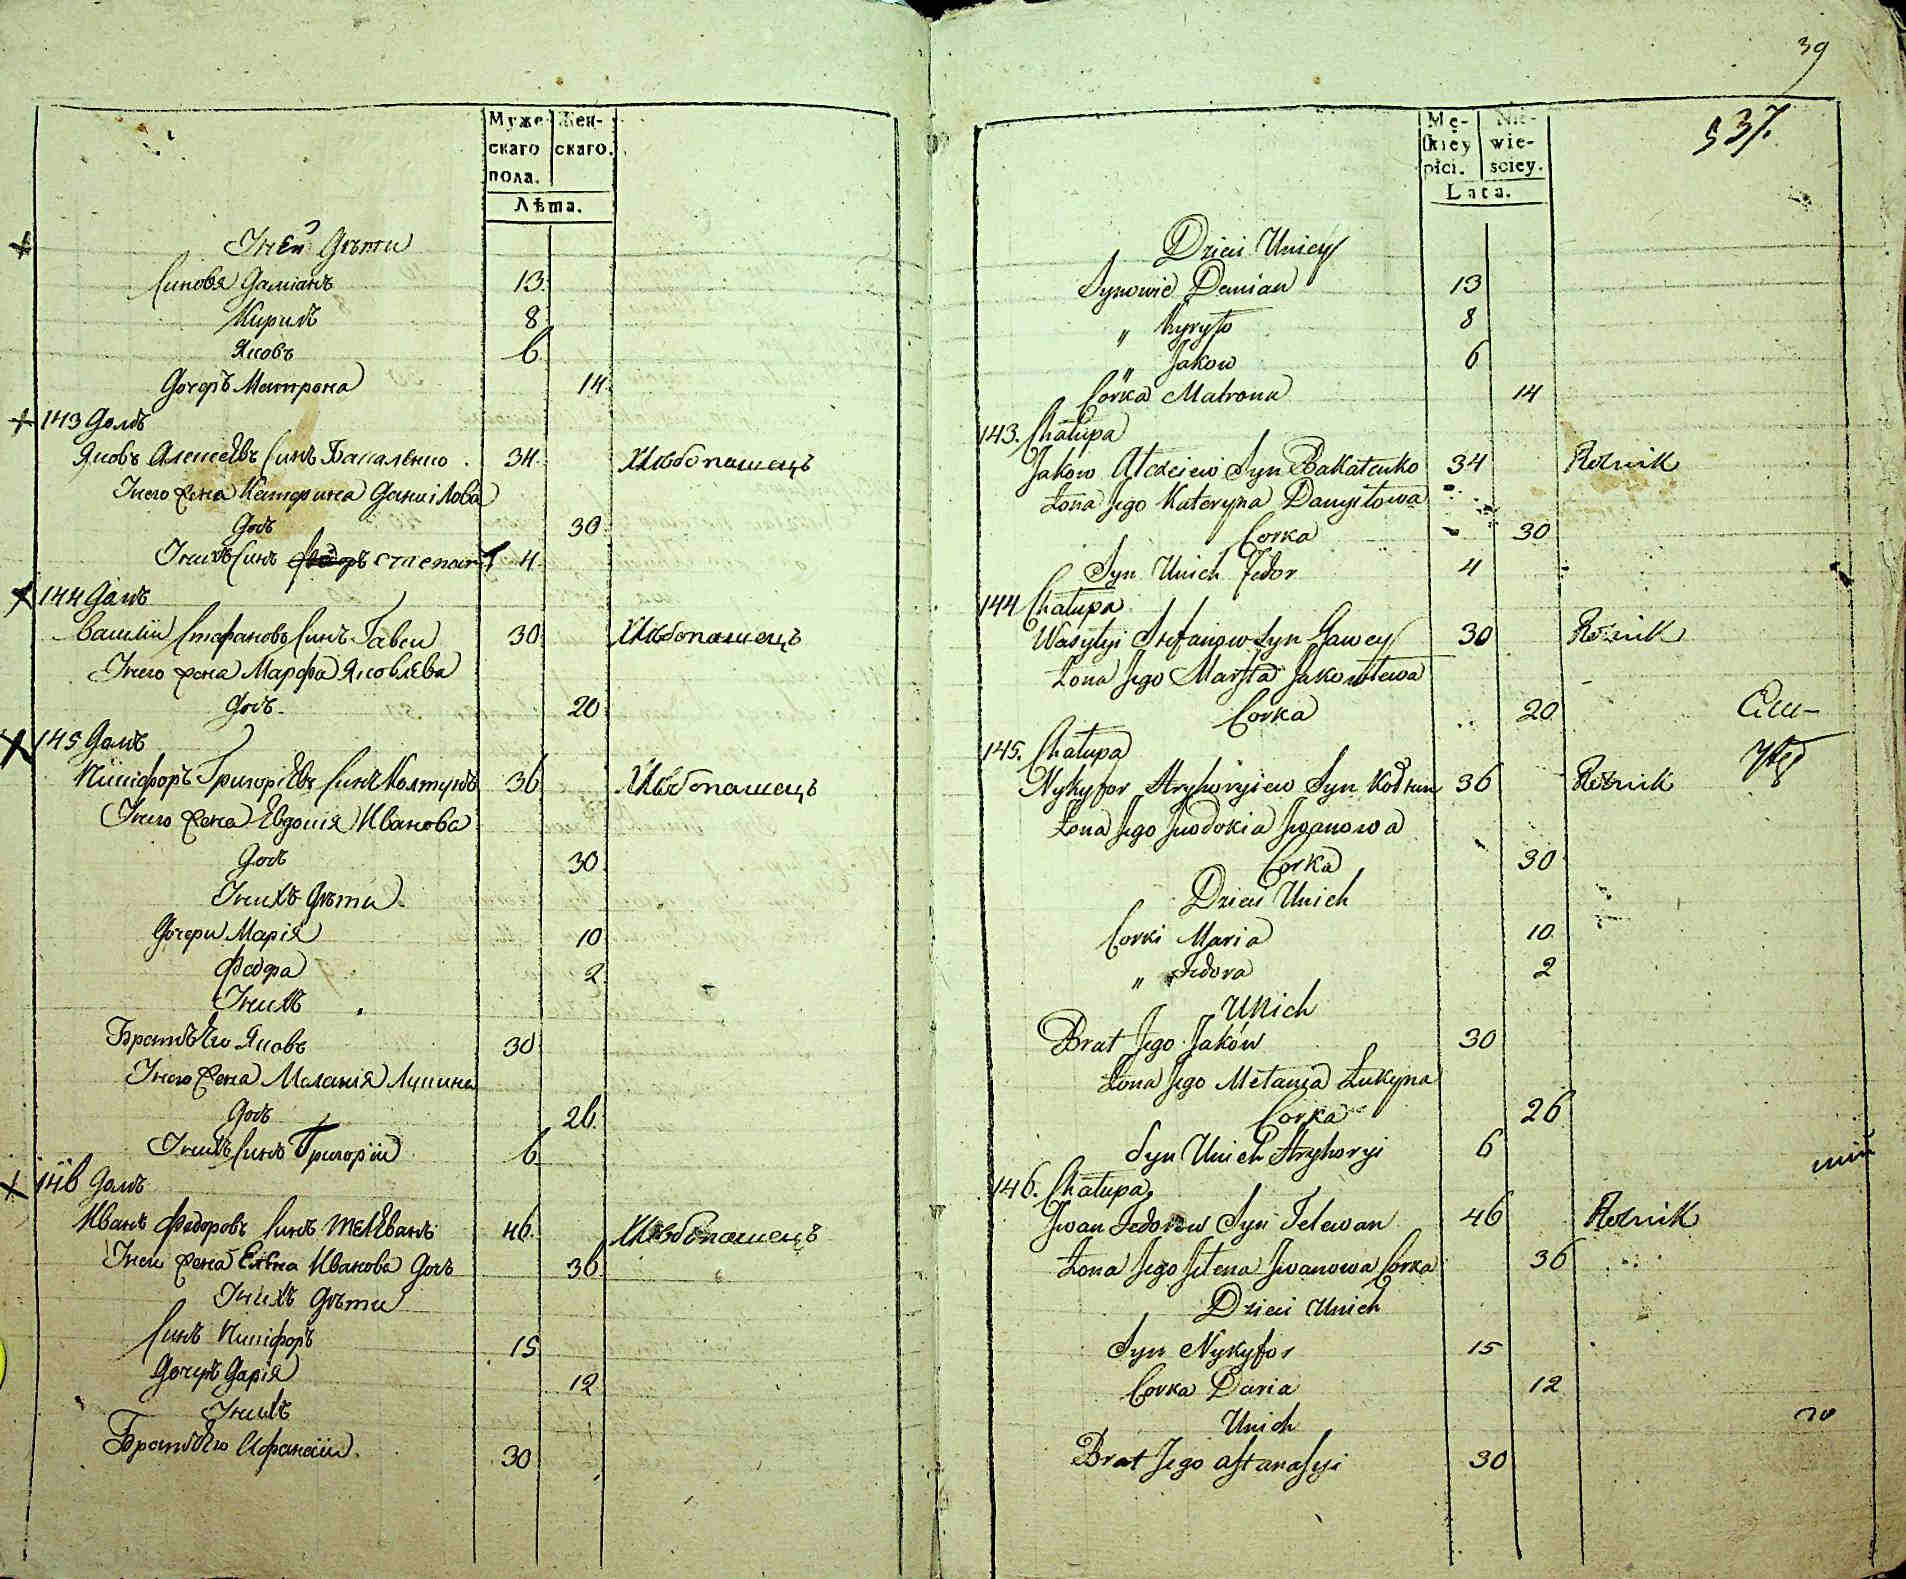 Муже-
скаго
пола.
Жен-
скаго.
Лѣта.
У ней Дѣти
Синовя Даміанъ 13
Кирилъ 8
Яковъ 6
Дочеръ Матрона 14
143 Домъ
Яковъ Алексѣевъ Синъ Бакаленко 34 Хлѣбопашецъ
У него Жена Катерина Данилова
Дочь 30
У нихъ Синъ Федоръ Степанъ 4
144 Домъ
Василій Стефановъ Синъ Гавей 30 Хлѣбопашецъ
У него Жена Марфа Яковлева
Дочь 20
145 Домъ
Никифоръ Григоріевъ Синъ Колтунъ 36 Хлѣбопашецъ
У него Жена Евдокія Иванова
Дочь 30
У нихъ Дѣти
Дочери Марія 10
Федора 2
У нихъ
Братъ Его Яковъ 30
У него Жена Маланія Лукина
Дочь 26
У нихъ Синъ Григорій 6
146 Домъ
Иванъ Федоровъ Синъ Телеванъ 46 Хлѣбопашецъ
У него Жена Елена Иванова Дочь 36
У нихъ Дѣти
Синъ Никифоръ 15
Дочеръ Дарія 12
У нихъ
Братъ Его Афанасій 30
39
537.
Mę-
skiey
płci.
Nie-
wie-
sciey.
Lata.
Dzieci U niey
Synowie Demian 13
„ Kyryło 8
„ Jakow 6
Corka Matrona 14
143. Chałupa
Jakow Alexiejew Syn Bakałenko 34 Rolnik
Żona Jego Kateryna Danyłowa
Corka 30
Syn U nich Fedor 4
144 Chałupa
Wasylyi Stefanow Syn Gawey 30 Rolnik
Żona Jego Marfta Jakowlewa
Corka 20
145. Chałupa
Nykyfor Hryhoryiew Syn Kołtun 36 Rolnik
Żona Jego Jwdokia Jwanowa
Corka 30
Dzieci U nich
Corki Maria 10
„ Fedora 2
U nich
Brat Jego Jaków 30
Żona Jego Mełania Łukyna
Corka 26
Syn U nich Hryhoryi 6
146. Chałupa
Jwan Fedorow Syn Telewan 46 Rolnik
Żona Jego Jełena Jwanowa Corka 36
Dzieci U nich
Syn Nykyfor 15
Corka Daria 12
U nich
Brat Jego Aftanasyi 30